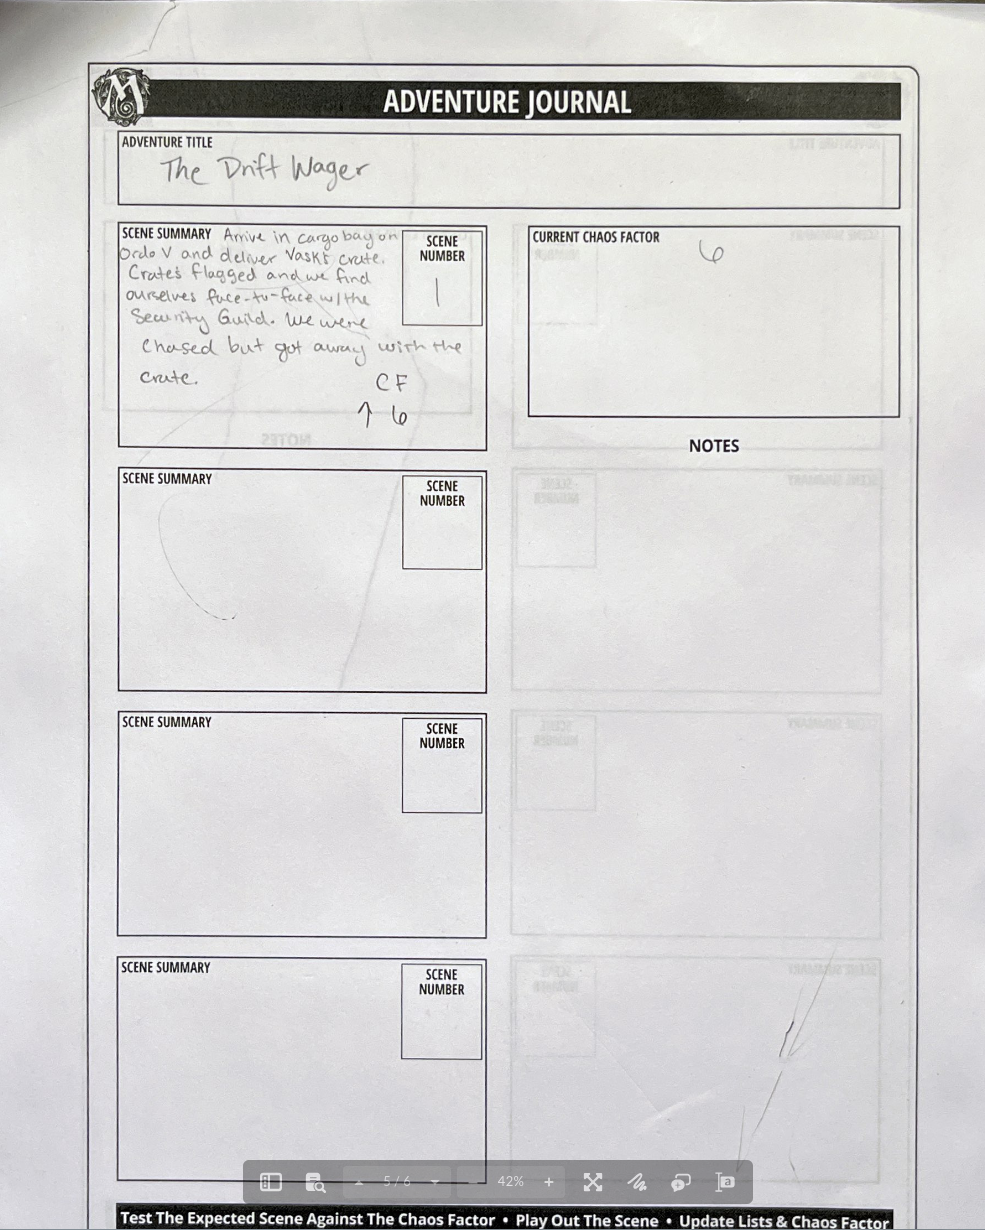 ADVENTURE JOURNAL
ADVENTURE TITLE
The Drift Wager
SCENE SUMMARY Arrive in cargo bay on
Ordo V and deliver Vask's crate.
Crate's flagged and we find
ourselves face-to-face w/the
Security Guild. We were
chased but got away with the
crate.
CF
↑ 6
SCENE
NUMBER
1
CURRENT CHAOS FACTOR
6
NOTES
SCENE SUMMARY
SCENE
NUMBER
SCENE SUMMARY
SCENE
NUMBER
SCENE SUMMARY
SCENE
NUMBER
5/6
42%
Test The Expected Scene Against The Chaos Factor • Play Out The Scene • Update Lists & Chaos Factor